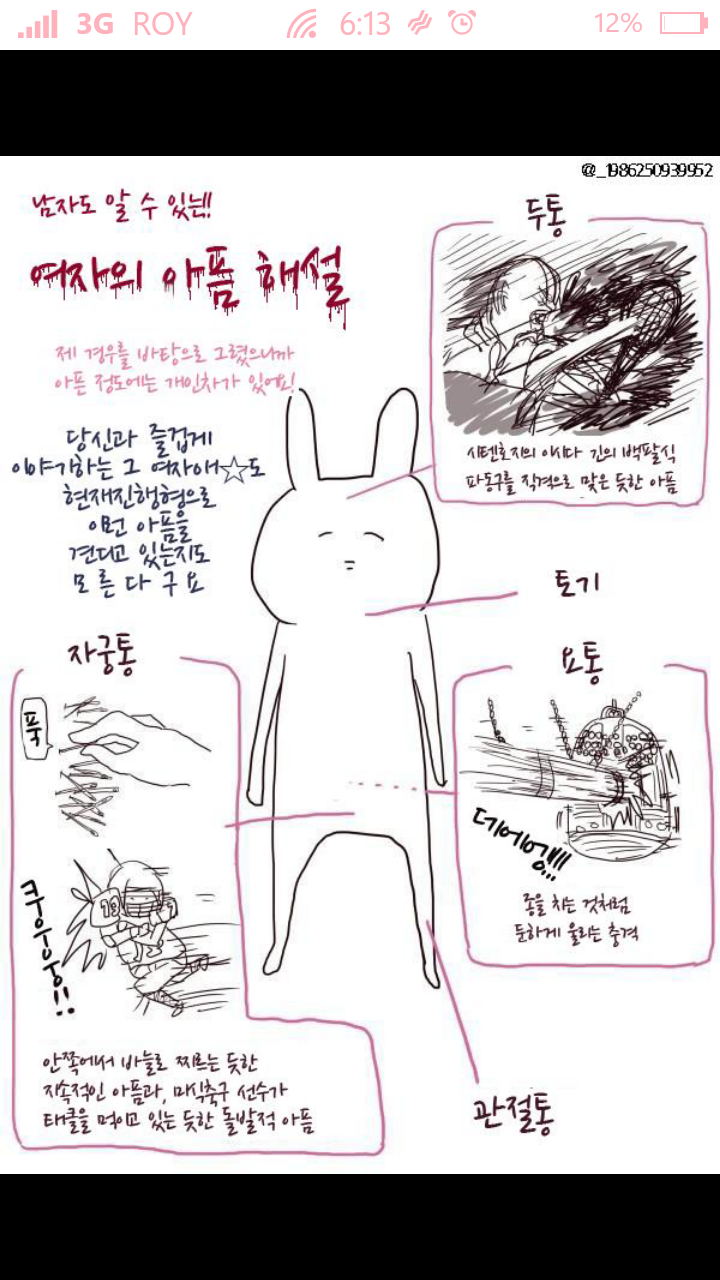 3G ROY 6:13 12%
@_1986250939952
남자도 알 수 있는!!
여자의 아픔 해설
제 경우를 바탕으로 그렸으니까
아픈 정도에는 개인차가 있어요!
당신과 즐겁게
이야기하는 그 여자애☆도
현재진행형으로
이런 아픔을
견디고 있는지도
모른다구요
두통
시텐호지의 이시다 긴의 백팔식
파동구를 직격으로 맞은 듯한 아픔
토기
자궁통
푹
쿠우우웅!!
안쪽에서 바늘로 찌르는 듯한
지속적인 아픔과, 미식축구 선수가
태클을 먹이고 있는 듯한 돌발적 아픔
요통
데에에엥!!!...
종을 치는 것처럼
둔하게 울리는 충격
관절통